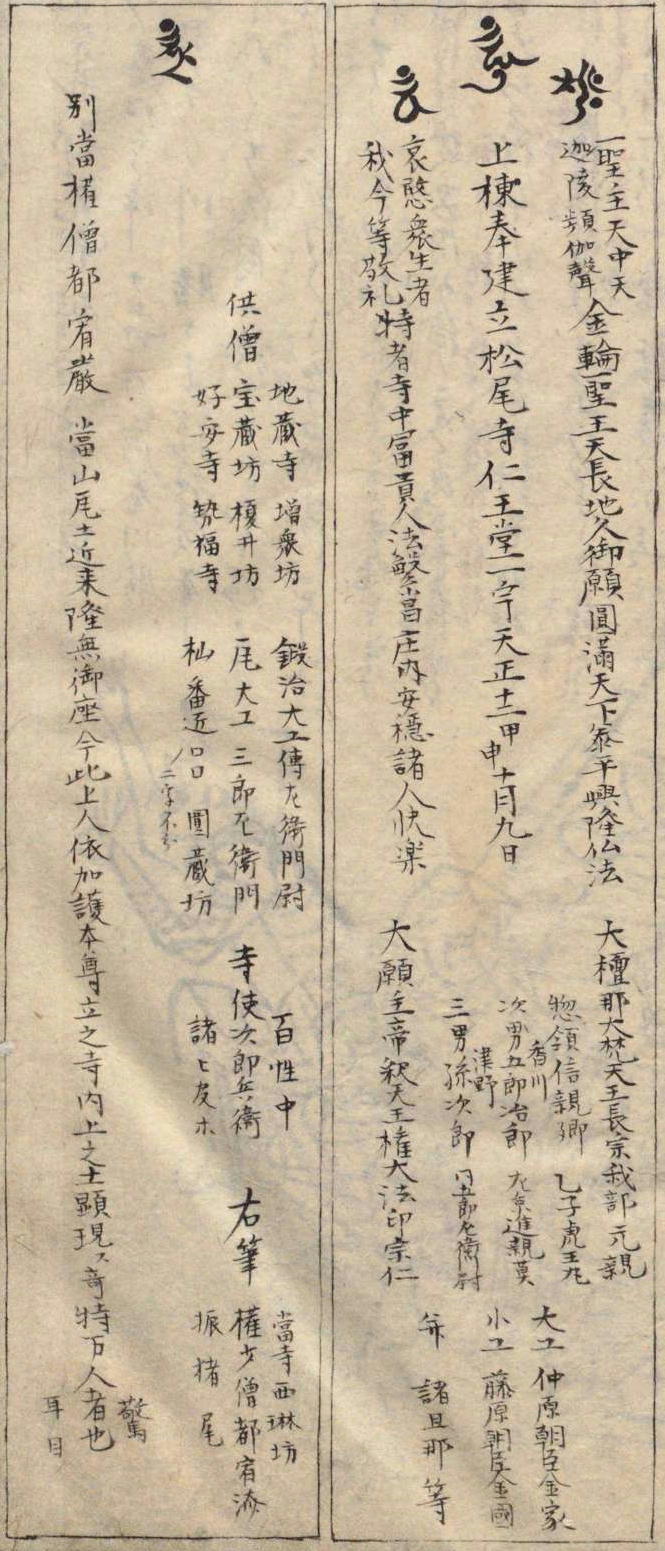 聖主天中天
迦陵頻伽聲
金輪聖王天長地久御願圓滿天下泰平興隆仏法
上棟奉建立松尾寺仁王堂一宇天正十二甲申十月九日
哀愍衆生者
我今等敬礼
特者寺中富貴人法繁昌庄内安穩諸人快楽
大檀那大梵天王長宗我部元親
惣領信親卿 乙子虎王丸
香川
次男五郎治郎 左京進親莫
津野
三男孫次郎 同五郎左衛門尉
大願主帝釈天王權大法印宗仁
大工 仲原朝臣金家
小工 藤原朝臣金國
并 諸旦那等
供僧
地蔵寺 増衆坊
宝蔵坊 榎井坊
好安寺 筑福寺
鍛冶大工傳左衛門尉
瓦大工 三郎左衛門
杣番近口口 圓蔵坊
二字不分
百性中
寺使次郎兵衛
諸ヒ皮木
右筆
當寺西琳坊
權少僧都宥済
振猪尾
別當權僧都宥嚴 當山瓦土近来隆無御座今此上人依加護本尊立之寺内上之土顕現ス奇特万人者也
驚
耳目